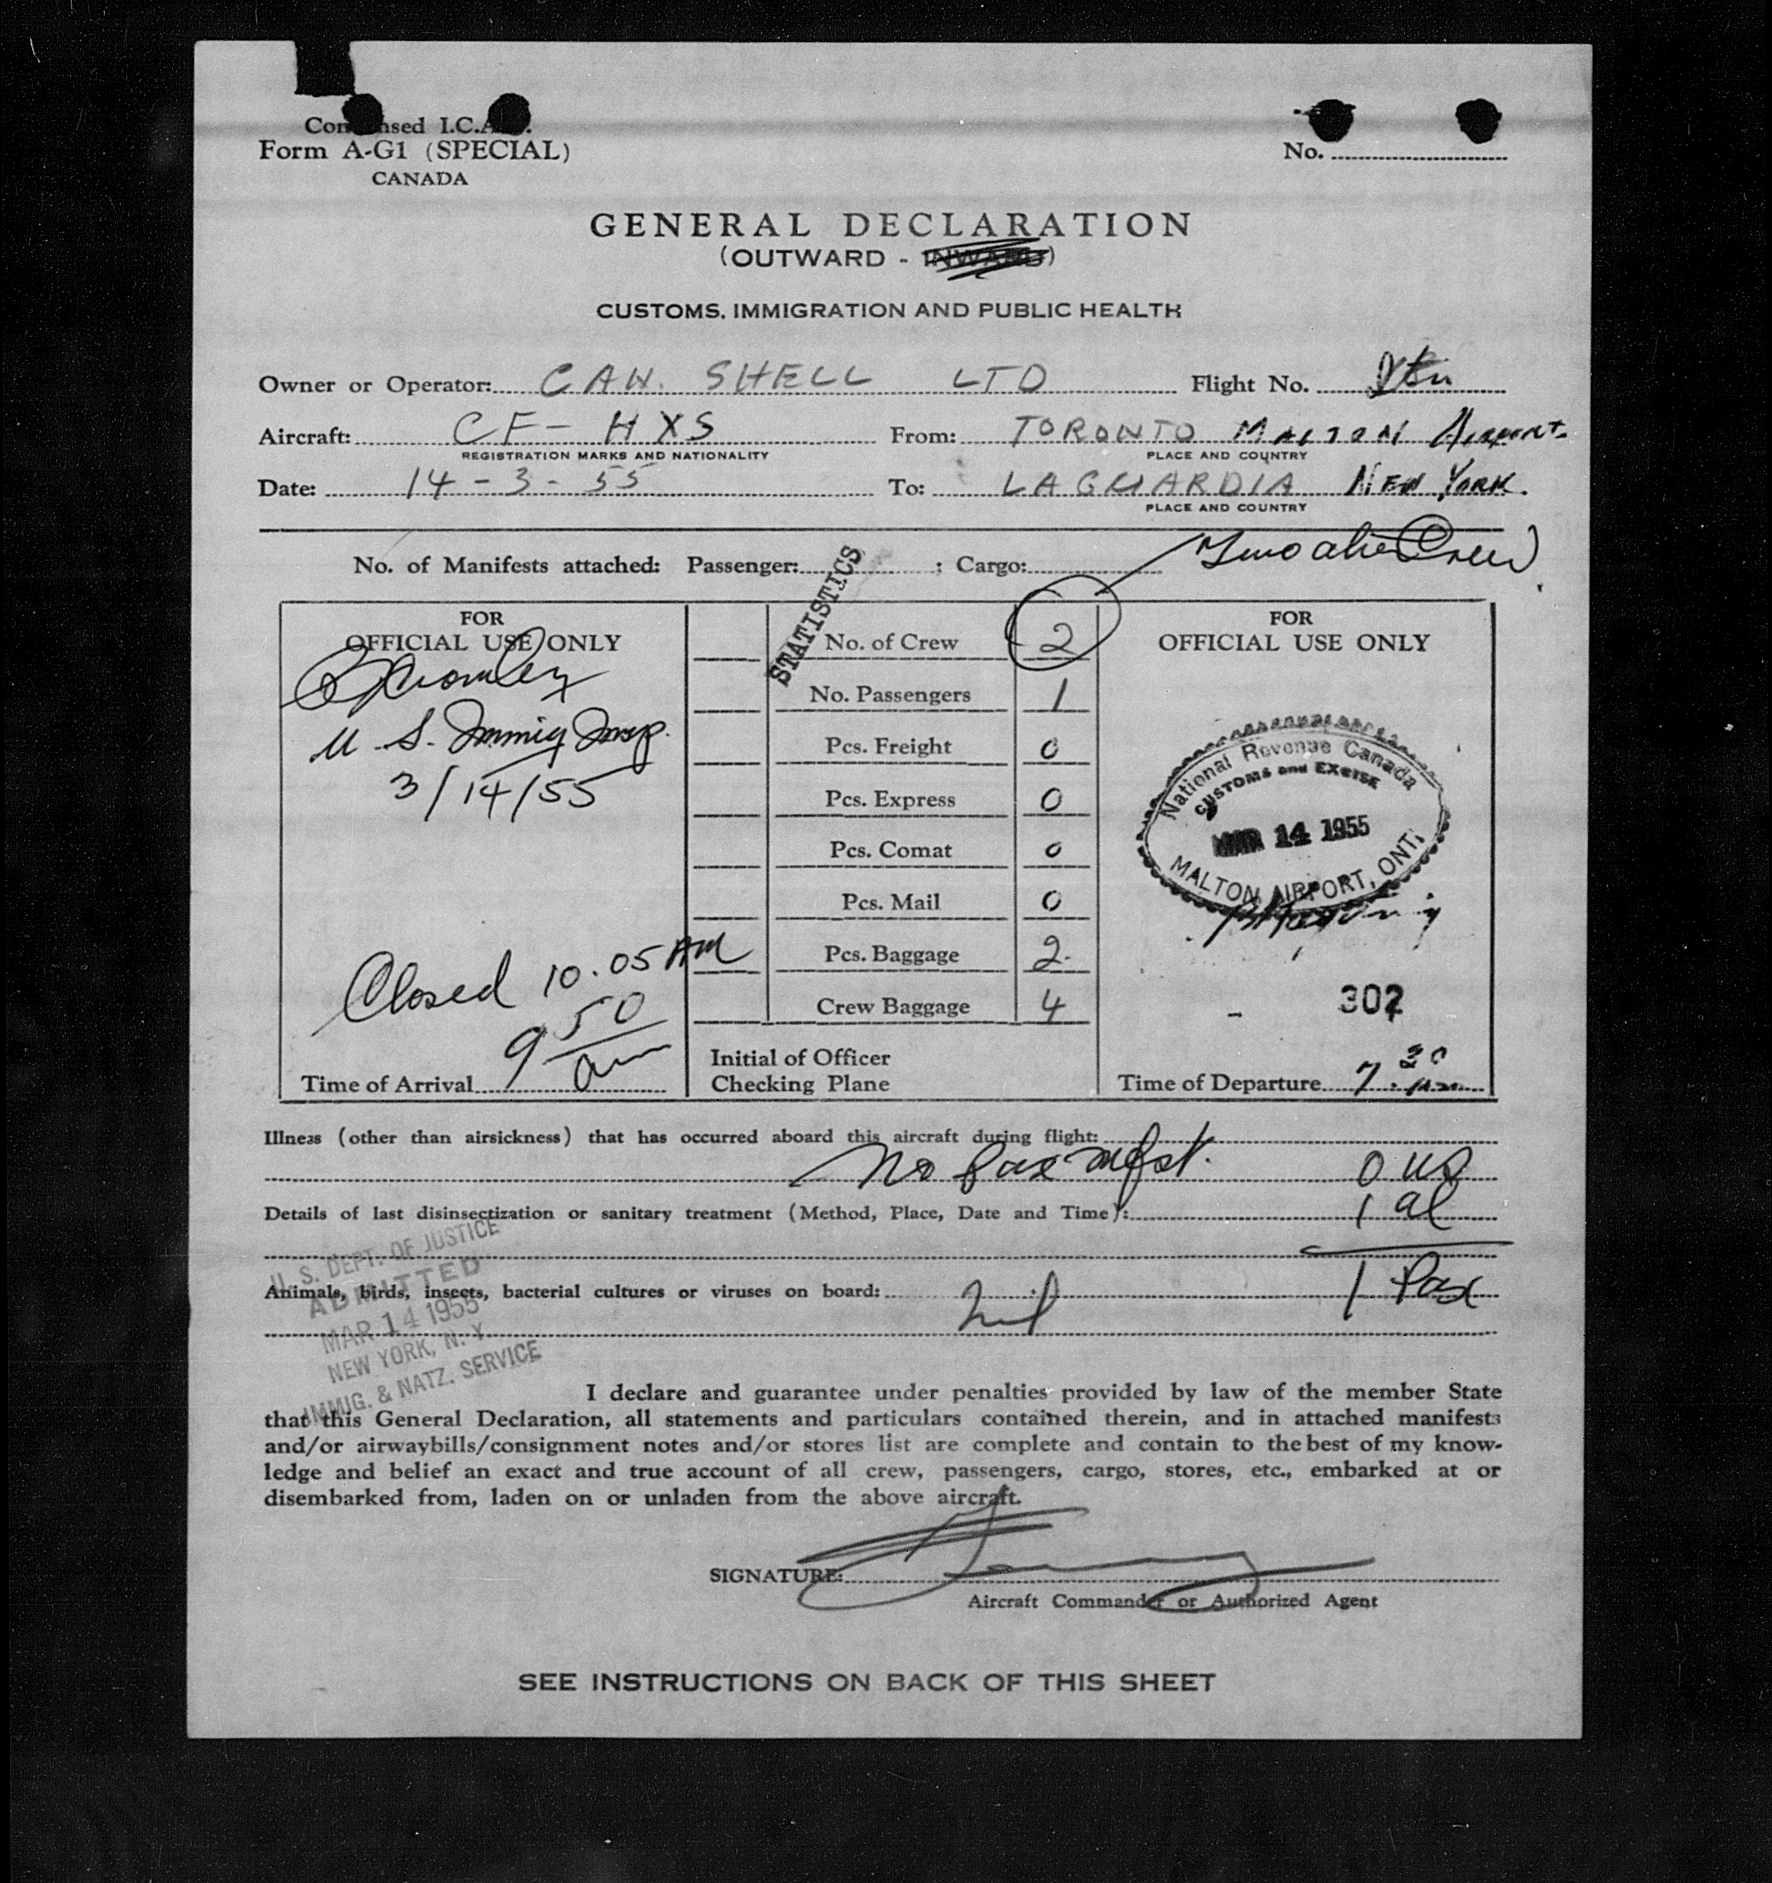 Condensed I.C.A.O.
Form A-G1 (SPECIAL)
CANADA
No.
GENERAL DECLARATION
(OUTWARD - INWARD)
CUSTOMS, IMMIGRATION AND PUBLIC HEALTH
Owner or Operator: CAN. SHELL LTD Flight No.
Aircraft: CF-HXS From: TORONTO MALTON AIRPORT.
REGISTRATION MARKS AND NATIONALITY PLACE AND COUNTRY
Date: 14-3-55 To: LAGUARDIA NEW YORK.
PLACE AND COUNTRY
No. of Manifests attached: Passenger: ; Cargo: Two alien Crew
STATISTICS
FOR
OFFICIAL USE ONLY
U.S. Immig Insp.
3/14/55
Closed 10.05 AM
Time of Arrival 9 50 am
No. of Crew 2
No. Passengers 1
Pcs. Freight 0
Pcs. Express 0
Pcs. Comat 0
Pcs. Mail 0
Pcs. Baggage 2.
Crew Baggage 4
Initial of Officer
Checking Plane
FOR
OFFICIAL USE ONLY
National Revenue Canada
CUSTOMS and EXCISE
MAR 14 1955
MALTON AIRPORT, ONT.
302
Time of Departure 7.30
Illness (other than airsickness) that has occurred aboard this aircraft during flight:
No pax mfst. 0 us
Details of last disinsectization or sanitary treatment (Method, Place, Date and Time): 1 al
U. S. DEPT. OF JUSTICE
ADMITTED
MAR 14 1955
NEW YORK, N. Y.
IMMIG. & NATZ. SERVICE
Animals, birds, insects, bacterial cultures or viruses on board: Nil 1 Pax
I declare and guarantee under penalties provided by law of the member State
that this General Declaration, all statements and particulars contained therein, and in attached manifests
and/or airwaybills/consignment notes and/or stores list are complete and contain to the best of my know-
ledge and belief an exact and true account of all crew, passengers, cargo, stores, etc., embarked at or
disembarked from, laden on or unladen from the above aircraft.
SIGNATURE:
Aircraft Commander or Authorized Agent
SEE INSTRUCTIONS ON BACK OF THIS SHEET